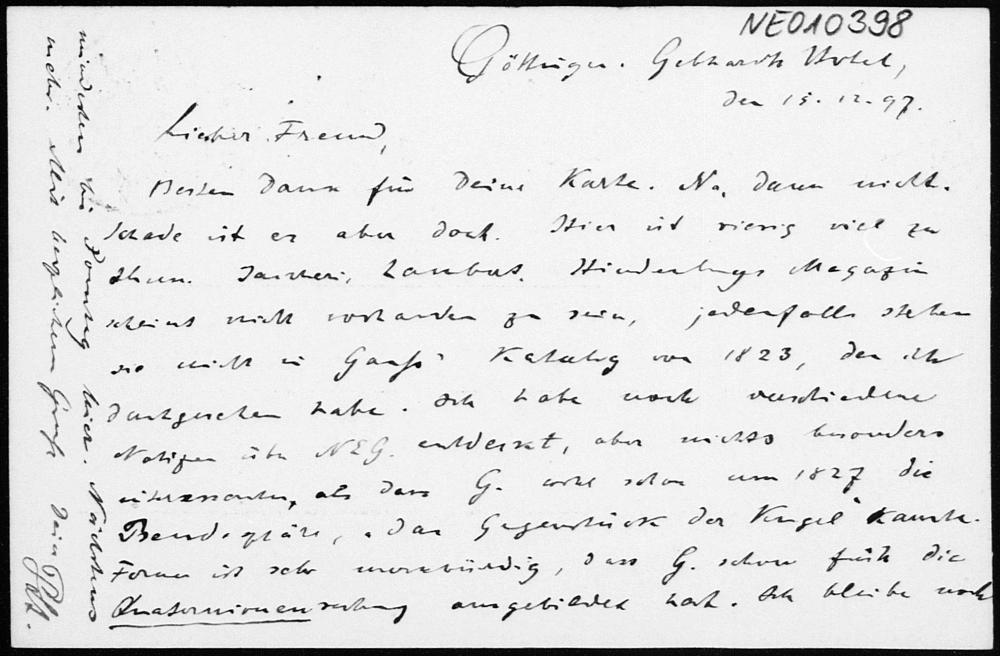 NE010398
Göttingen. Gebhards Hotel,
den 15. 12. 97.
Lieber Freund,
Besten Dank für Deine Karte. Na, dann nicht.
Schade ist es aber doch. Hier ist riesig viel zu
thun. Saccheri, Lambert, Hindenburgs Magazin
scheint nicht vorhanden zu sein, jedenfalls stehen
sie nicht in Gauß' Katalog von 1823, den ich
durchgesehen habe. Ich habe noch verschiedene
Notizen über NEG. entdeckt, aber nichts besonders
interessantes, als dass G. wohl schon um 1827 die
Pseudosphäre, „das Gegenstück der Kugel" kannte.
Ferner ist sehr merkwürdig, dass G. schon früh die
Quaternionenrechnung ausgebildet hat. Ich bleibe noch
mindestens bis Sonntag hier. Nächstens
mehr. Mit herzlichem Gruße Dein